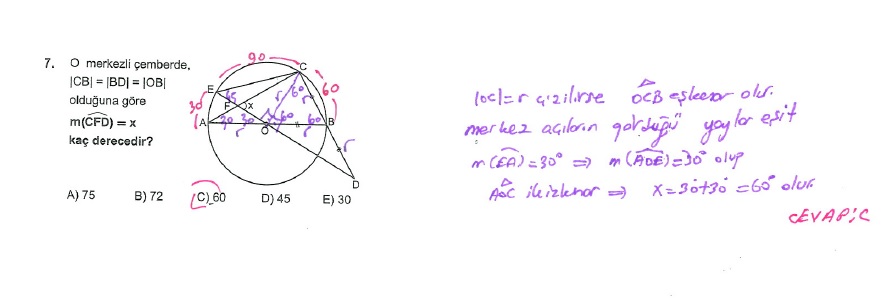 7. O merkezli çemberde,
|CB| = |BD| = |OB|
olduğuna göre
m(CFD) = x
kaç derecedir?
A) 75 B) 72 C) 60 D) 45 E) 30
90
C
E
60
30
45
F
x
r
60
r
A
30
30
O
60
r
60
B
r
D
|OC|=r çizilirse OCB eşkenar olur.
merkez açıların gördüğü yaylar eşit
m(EA)=30° ⇒ m(AOE)=30° olup
AOC ikizkenar ⇒ x=30+30=60° olur.
CEVAP: C